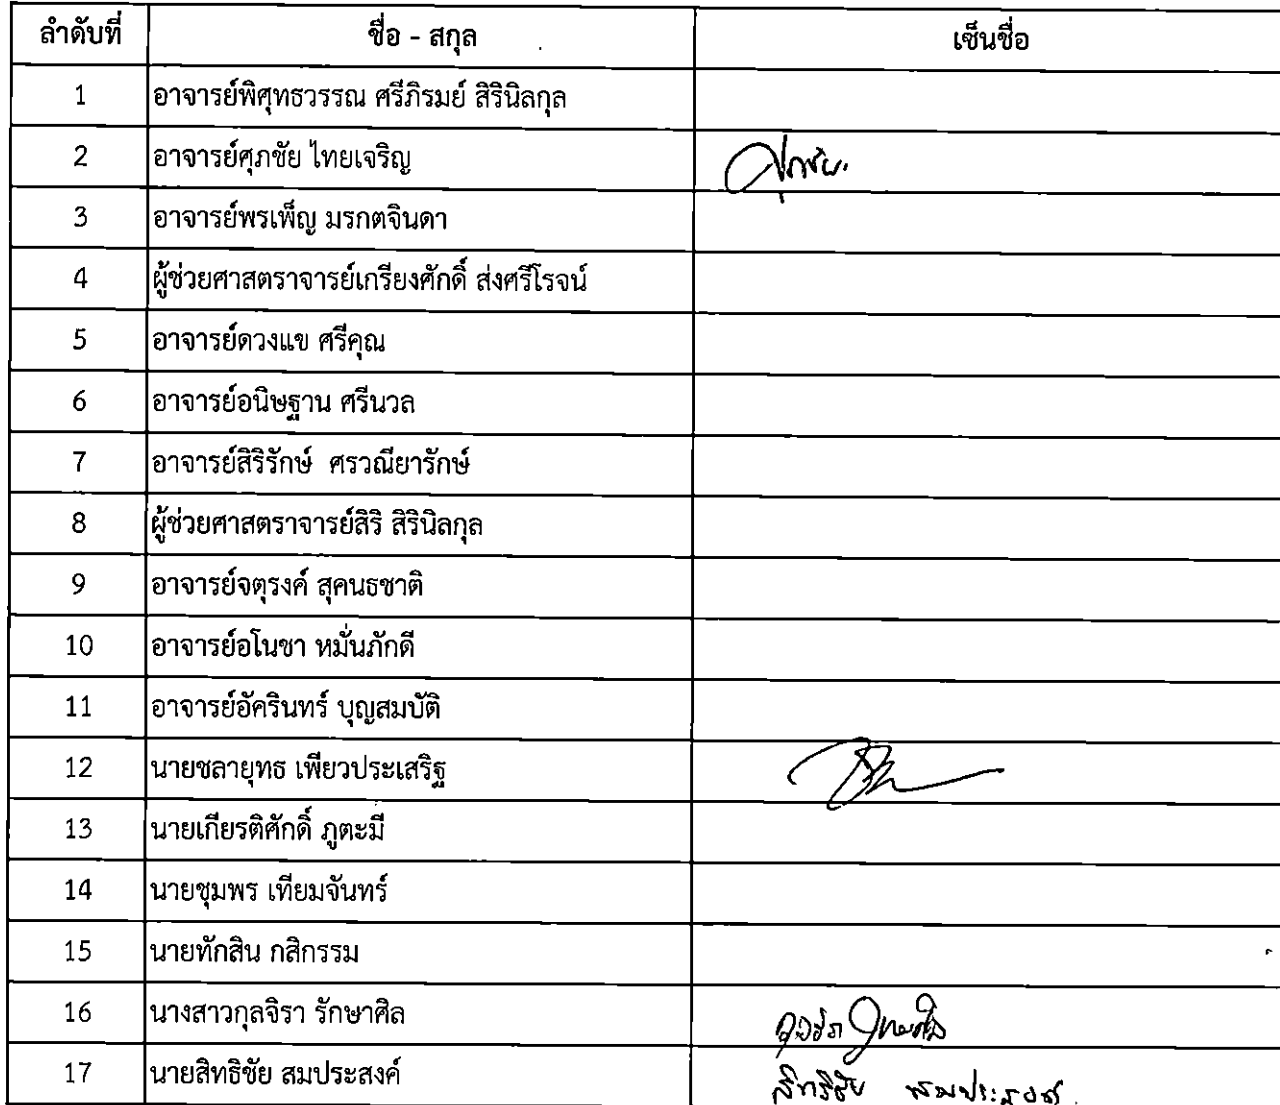 ลำดับที่ ชื่อ - สกุล เซ็นชื่อ
1 อาจารย์พิศุทธวรรณ ศรีภิรมย์ สิรินิลกุล
2 อาจารย์ศุภชัย ไทยเจริญ ศุภชัย
3 อาจารย์พรเพ็ญ มรกตจินดา
4 ผู้ช่วยศาสตราจารย์เกรียงศักดิ์ ส่งศรีโรจน์
5 อาจารย์ดวงแข ศรีคุณ
6 อาจารย์อนิษฐาน ศรีนวล
7 อาจารย์สิริรักษ์ ศรวณียารักษ์
8 ผู้ช่วยศาสตราจารย์สิริ สิรินิลกุล
9 อาจารย์จตุรงค์ สุคนธชาติ
10 อาจารย์อโนชา หมั่นภักดี
11 อาจารย์อัครินทร์ บุญสมบัติ
12 นายชลายุทธ เพียวประเสริฐ
13 นายเกียรติศักดิ์ ภูตะมี
14 นายชุมพร เทียมจันทร์
15 นายทักสิน กสิกรรม
16 นางสาวกุลจิรา รักษาศิล
17 นายสิทธิชัย สมประสงค์ สิทธิชัย สมประสงค์